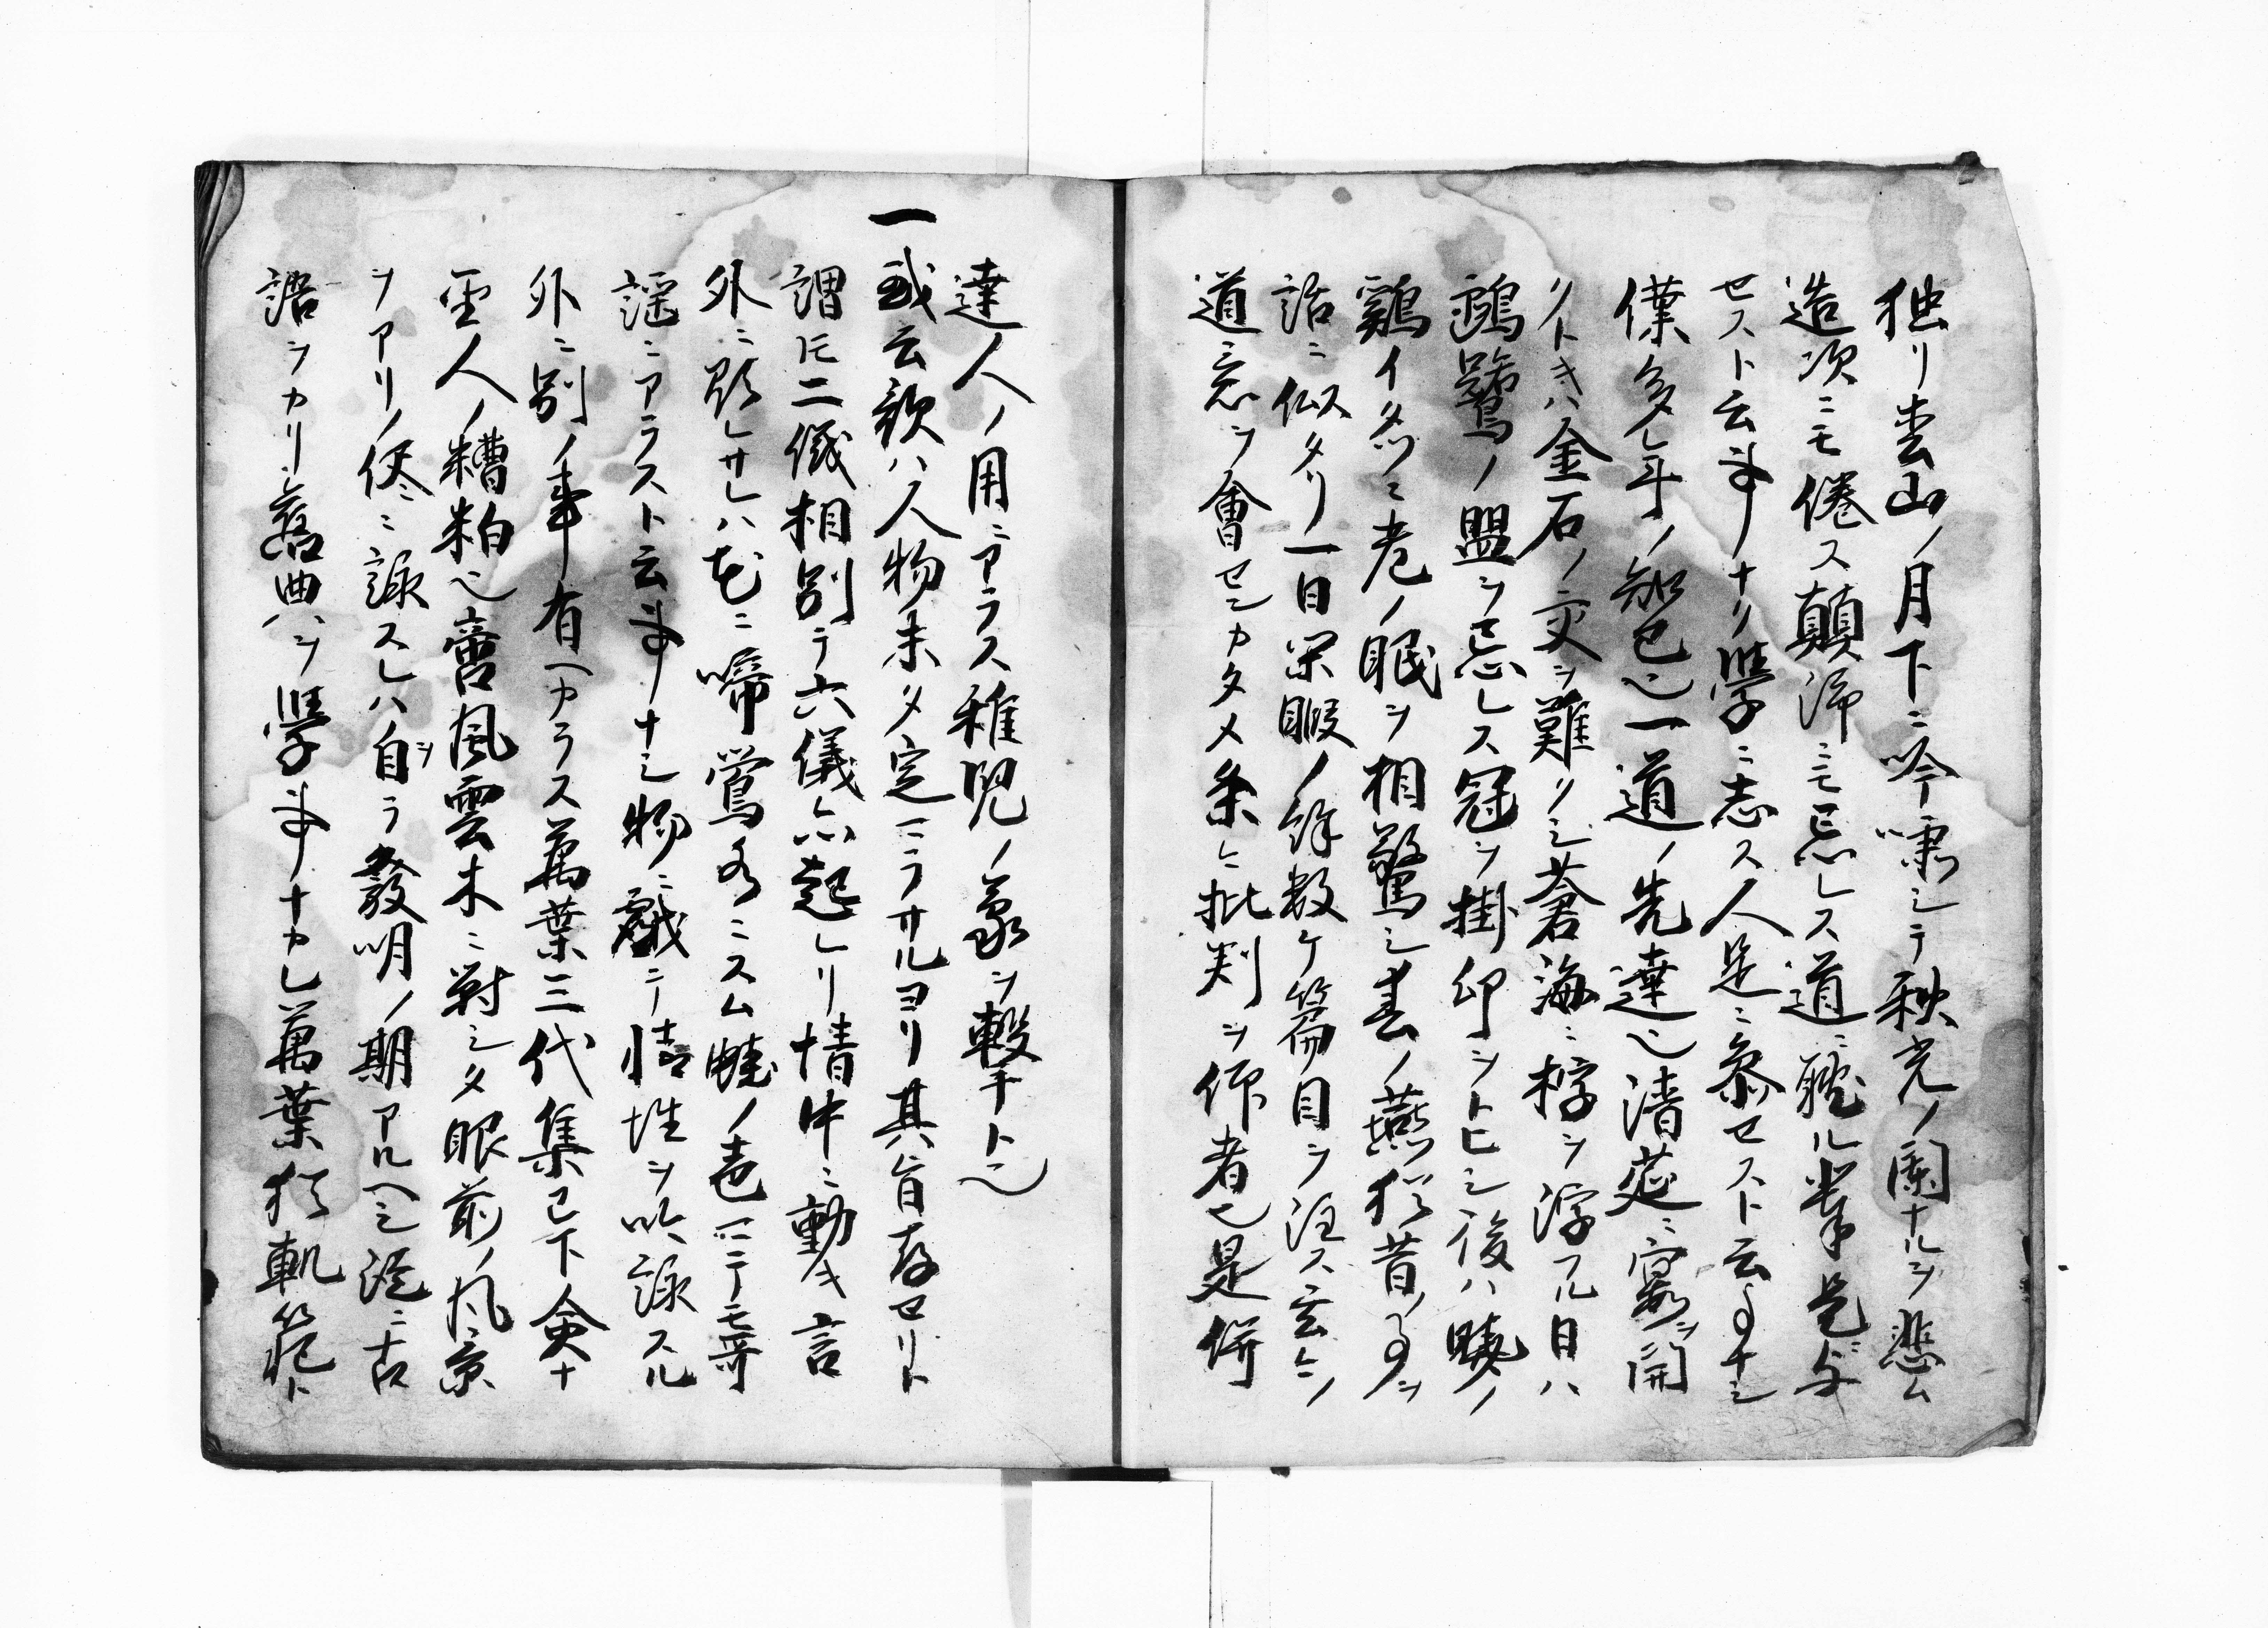 独リ雲山ノ月下ニ吟嘯シテ秋光ノ闌ナルヲ悲ム
造次ニモ倦ス顛沛ニモ忘レス道ニ聴ル掌是ヲ与
セスト云事ナリ学ニ志ス人是ニ参セスト云事ナシ
僕多年ノ知己也一道ノ先達也清莚ニ宴ヲ開
リトキハ金石ノ交ヲ難リシ蒼海ニ桴ヲ浮フル日ハ
鴎鷺ノ盟ヲ忘レス冠ヲ掛印ヲトヒシ後ハ暁ノ
鶏イタツニ老ノ眠ヲ相驚シ春ノ燕猶昔ノ事ヲ
話ニ似タリ一日閑暇ノ余数ケ篇目ヲ注ス玄々ノ
道ニ志ヲ会センカタメ条々ニ批判ヲ作者也是併
達人ノ用ニアラス稚児ノ蒙ヲ撃ト也
一或云歌ハ人物未タ定ニラサルヨリ其旨存セリト
謂ヒ二儀相別テ六儀亦起レリ情中ニ動キ言
外ニ顕レサレハ花ニ啼鶯水ニスム蛙ノ声ニテモ哥
謡ニアラスト云事ナシ物ニ戯テ情性ヲ吟詠スル
外ニ別ノ事有ヘカラス萬葉三代集已下僉ナ
聖人ノ糟粕也嘗風雲木ニ対シタ眼前ノ風景
ヲアリノ侭ニ詠スレハ自ヲラ発明ノ期アルヘシ浴ニ古
語ヲカリ旧典ヲ学事ナカレ萬葉猶軌範ト